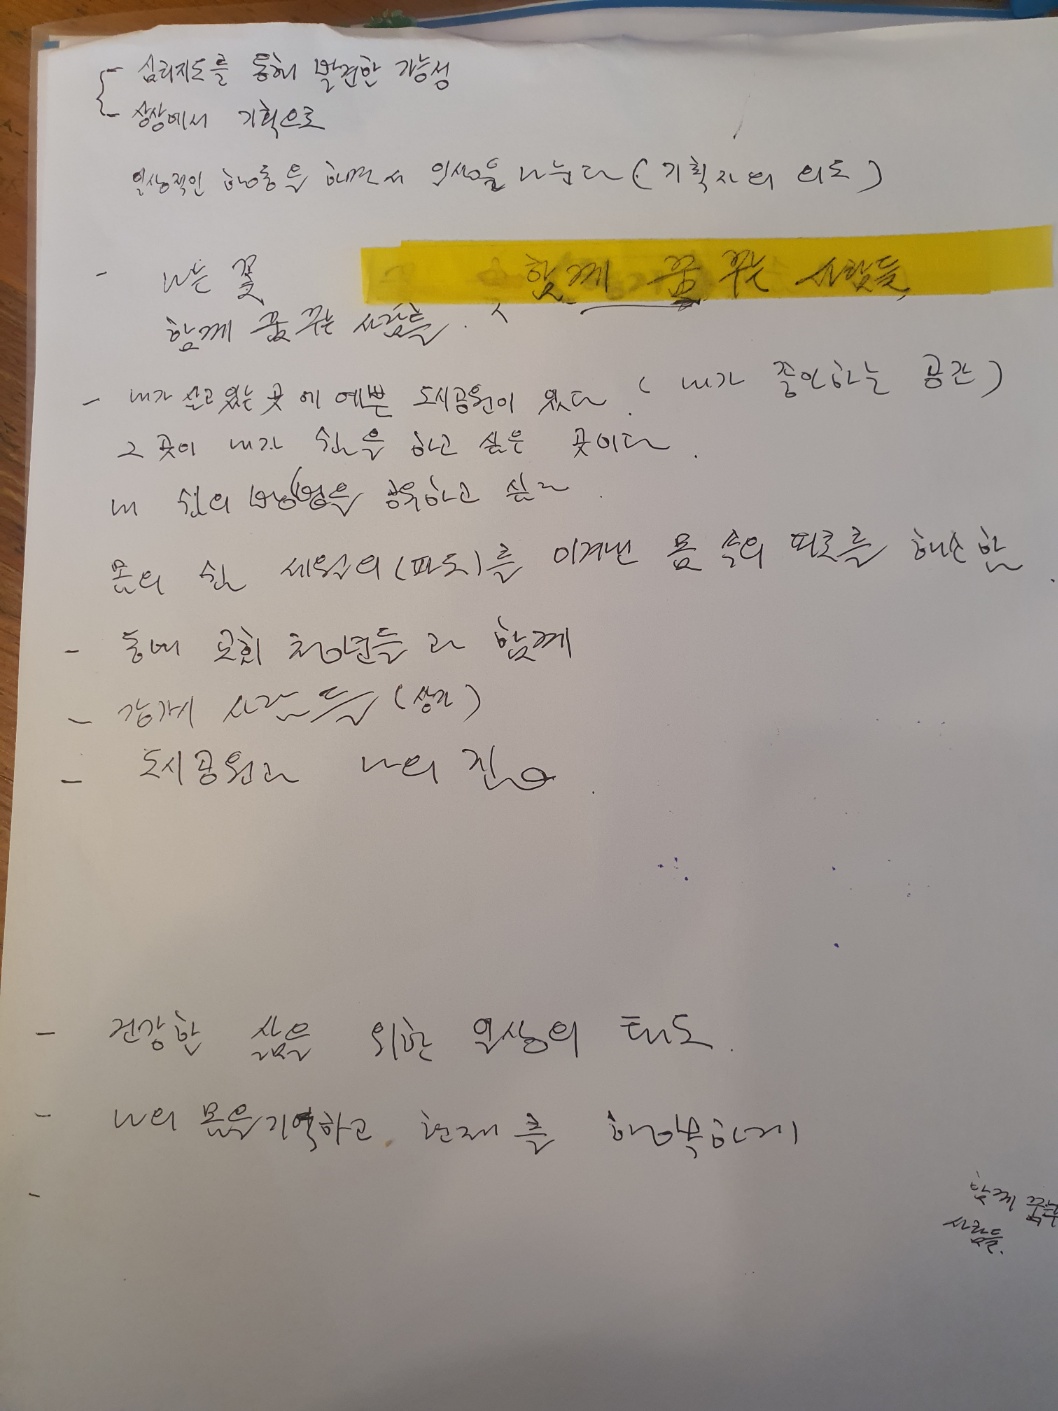 - 심리지도를 통해 발견한 가능성
- 상상에서 기획으로
일상적인 행동을 하면서 일상을 나눕다 (기획자의 의도)
- 나는 꽃
함께 꿈 꾸는 사람들
함께 꿈 꾸는 사람들.
- 내가 살고 있는 곳에 예쁜 도시공원이 있다. (내가 좋아하는 공간)
그 곳이 내가 쉼을 하고 싶은 곳이다.
내 쉼의 방법을 공유하고 싶다.
몸의 쉼 세월의 (파도)를 이겨낸 몸 속의 피로를 해소함.
- 동네 교회 청년들과 함께
- 사람들 (상가)
- 도시공원과 나의
- 건강한 삶을 위한 일상의 태도.
- 나의 몸을 기억하고 현재를 행복하게
-
함께 꿈꾸는
사람들.